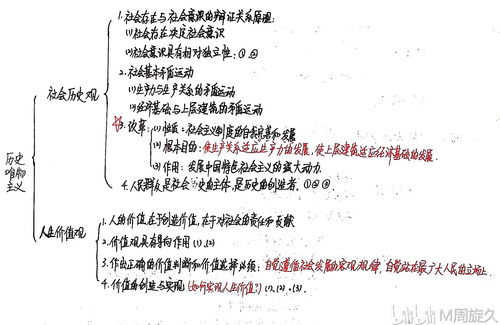 历史唯物主义
社会历史观
1.社会存在与社会意识的辩证关系原理:
(1)社会存在决定社会意识
(2)社会意识具有相对独立性:①②
2.社会基本矛盾运动
(1)生产力与生产关系的矛盾运动
(2)经济基础与上层建筑的矛盾运动
3.改革:(1)性质:社会主义制度的自我完善和发展
(2)根本目的:使生产关系适应生产力的发展,使上层建筑适应经济基础的发展.
(3)作用:发展中国特色社会主义的强大动力.
4.人民群众是社会历史的主体,是历史的创造者.①②③
人生价值观
1.人的价值,在于创造价值,在于对社会的责任和贡献
2.价值观具有导向作用(1).(2)
3.作出正确的价值判断和价值选择必须:自觉遵循社会发展的客观规律,自觉站在最广大人民的立场上.
4.价值的创造与实现(如何实现人生价值?)(1).(2).(3).
M周旋久